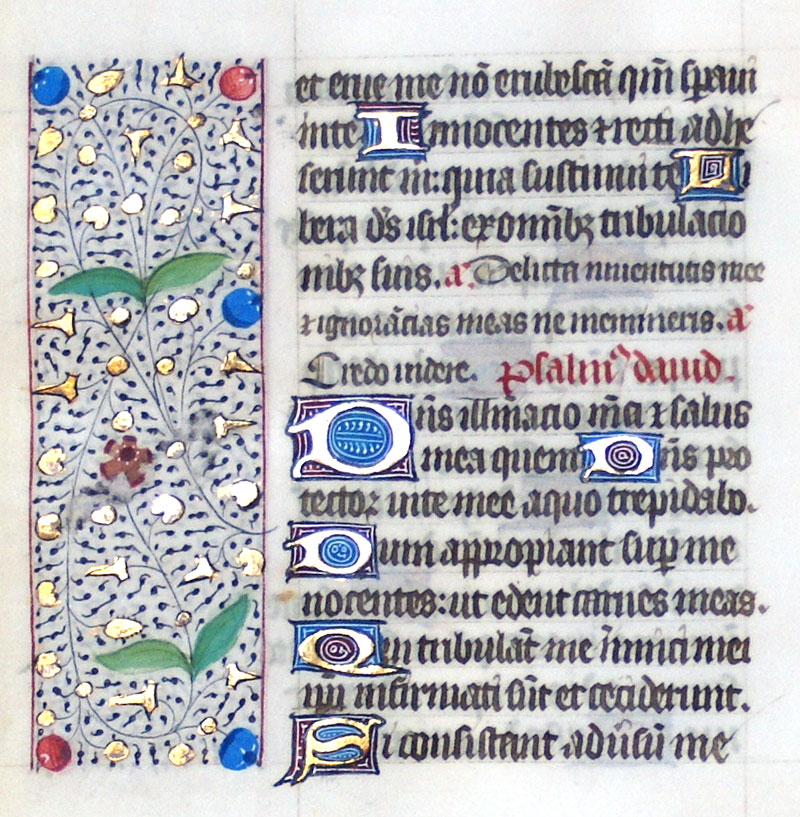 et erue me nō erubescā qm̄ sperauı
in te Innocentes ⁊ recti adhe
serunt m: quia sustinui te Li
bera d̄s isrl: ex omnibꝫ tribulatio
nibꝫ suis. a̅. Delicta iuuentutis mee
⁊ ignorācias meas ne memineris. a̅
Credo uidere. Psalm9 dauid.
Dn̄s illīatio m̄a ⁊ salus
mea quem Dn̄s pro
tector uite mee a quo trepidabo.
Dum appropiant sup̄ me
nocentes: ut edent carnes meas.
Qui tribulāt me īnimici mei
ip̄i infirmati sūt et ceciderunt.
Si consistant adūsū me